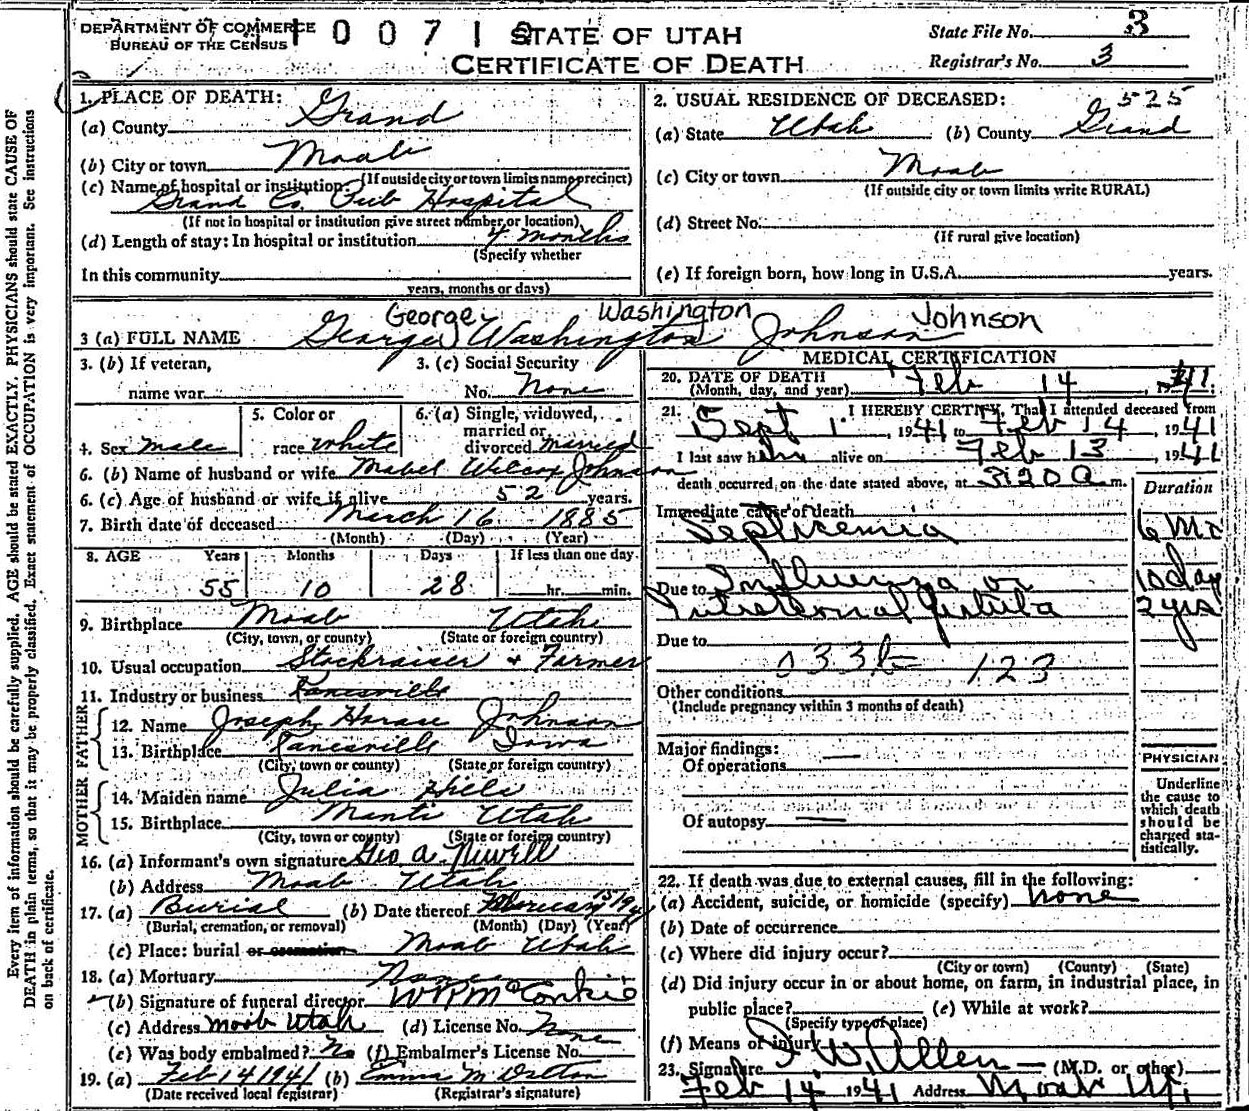 DEPARTMENT OF COMMERCE
BUREAU OF THE CENSUS
1 0 0 7 1
STATE OF UTAH
CERTIFICATE OF DEATH
State File No. 3
Registrar's No. 3
Every item of information should be carefully supplied. AGE should be stated EXACTLY. PHYSICIANS should state CAUSE OF
DEATH in plain terms, so that it may be properly classified. Exact statement of OCCUPATION is very important. See instructions
on back of certificate.
1. PLACE OF DEATH:
(a) County Grand
(b) City or town Moab
(If outside city or town limits name precinct)
(c) Name of hospital or institution:
Grand Co. Pub Hospital
(If not in hospital or institution give street number or location)
(d) Length of stay: In hospital or institution 4 months
(Specify whether
In this community
years, months or days)
2. USUAL RESIDENCE OF DECEASED: 525
(a) State Utah (b) County Grand
(c) City or town Moab
(If outside city or town limits write RURAL)
(d) Street No.
(If rural give location)
(e) If foreign born, how long in U.S.A. years.
George Washington Johnson
3 (a) FULL NAME George Washington Johnson
3. (b) If veteran,
name war
3. (c) Social Security
No. None
4. Sex male
5. Color or
race white
6. (a) Single, widowed,
married or
divorced married
6. (b) Name of husband or wife Mabel Wilcox Johnson
6. (c) Age of husband or wife if alive 52 years.
7. Birth date of deceased March 16 1885
(Month) (Day) (Year)
8. AGE Years Months Days If less than one day
55 10 28 hr. min.
9. Birthplace Moab Utah
(City, town, or county) (State or foreign country)
10. Usual occupation Stockraiser + Farmer
11. Industry or business Kanesville
FATHER
12. Name Joseph Horace Johnson
13. Birthplace Kanesville Iowa
(City, town or county) (State or foreign country)
MOTHER
14. Maiden name Julia Hills
15. Birthplace Manti Utah
(City, town or county) (State or foreign country)
16. (a) Informant's own signature Geo A. Newell
(b) Address Moab Utah
17. (a) Burial (b) Date thereof February 15 1941
(Burial, cremation, or removal) (Month) (Day) (Year)
(c) Place: burial or cremation Moab Utah
18. (a) Mortuary None
(b) Signature of funeral director W R McConkie
(c) Address Moab Utah (d) License No. None
(e) Was body embalmed? No (f) Embalmer's License No.
19. (a) Feb 14 1941 (b) Emma M Dalton
(Date received local registrar) (Registrar's signature)
MEDICAL CERTIFICATION
20. DATE OF DEATH
(Month, day, and year) Feb 14, 1941.
21. I HEREBY CERTIFY, That I attended deceased from
Sept 1, 1941 to Feb 14, 1941
I last saw him alive on Feb 13, 1941
death occurred on the date stated above, at 3:20 a m.
Duration
Immediate cause of death
Septicemia 6 Mo
Due to Influenza or 10 day
Fistula 2 yrs
Due to
033 123
Other conditions
(Include pregnancy within 3 months of death)
Major findings:
Of operations —
Of autopsy —
PHYSICIAN
Underline
the cause to
which death
should be
charged sta-
tistically.
22. If death was due to external causes, fill in the following:
(a) Accident, suicide, or homicide (specify) none
(b) Date of occurrence
(c) Where did injury occur?
(City or town) (County) (State)
(d) Did injury occur in or about home, on farm, in industrial place, in
public place? (e) While at work?
(Specify type of place)
(f) Means of injury
23. Signature I. W. Allen — (M.D. or other)
Feb 14. 1941 Address Moab Ut.